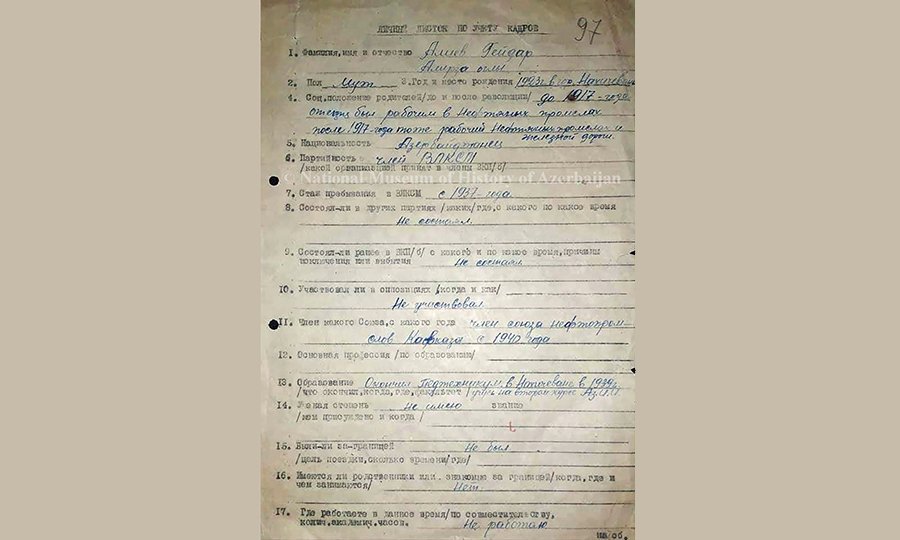 ЛИЧНЫЙ ЛИСТОК ПО УЧЕТУ КАДРОВ
97
1. Фамилия, имя и отчество Алиев Гейдар
Алирза оглы
2. Пол Муж 3. Год и место рождения 1923г. в гор. Нахичевани
4. Соц. положение родителей/до и после революции/ до 1917-года
отец был рабочим в Нефтяных промыслах
после 1917-года тоже рабочий Нефтяных промыслах и
железной дороги
5. Национальность Азербайджанец
6. Партийность член ВЛКСМ
/какой организацией принят в члены ВКП/б/
© National Museum of History of Azerbaijan
7. Стаж пребывания в ВЛКСМ с 1937-года
8. Состоял-ли в других партиях /каких/где, с какого по какое время
Не состоял
9. Состоял-ли ранее в ВКП/б/ с какого и по какое время, причины
исключения или выбытия Не состоял
10. Участвовал ли в оппозициях /когда и как/
Не участвовал
11. Член какого Союза, с какого года член союза нефтопром-
слов Кавказа с 1940 года
12. Основная профессия /по образованию/
13. Образование Окончил Педтехникум в Нахичевани в 1939г.
/что окончил, когда, где, факультет/ на втором курсе
14. Ученая степень не имею звание
/кем присуждено и когда/
15. Были-ли за-границей Не был
/цель поездки, сколько времени/где/
16. Имеются ли родственники или знакомые за границей/когда, где и
чем занимаются/ Нет.
17. Где работаете в данное время/по совместительству,
колич. академич. часов. Не работаю